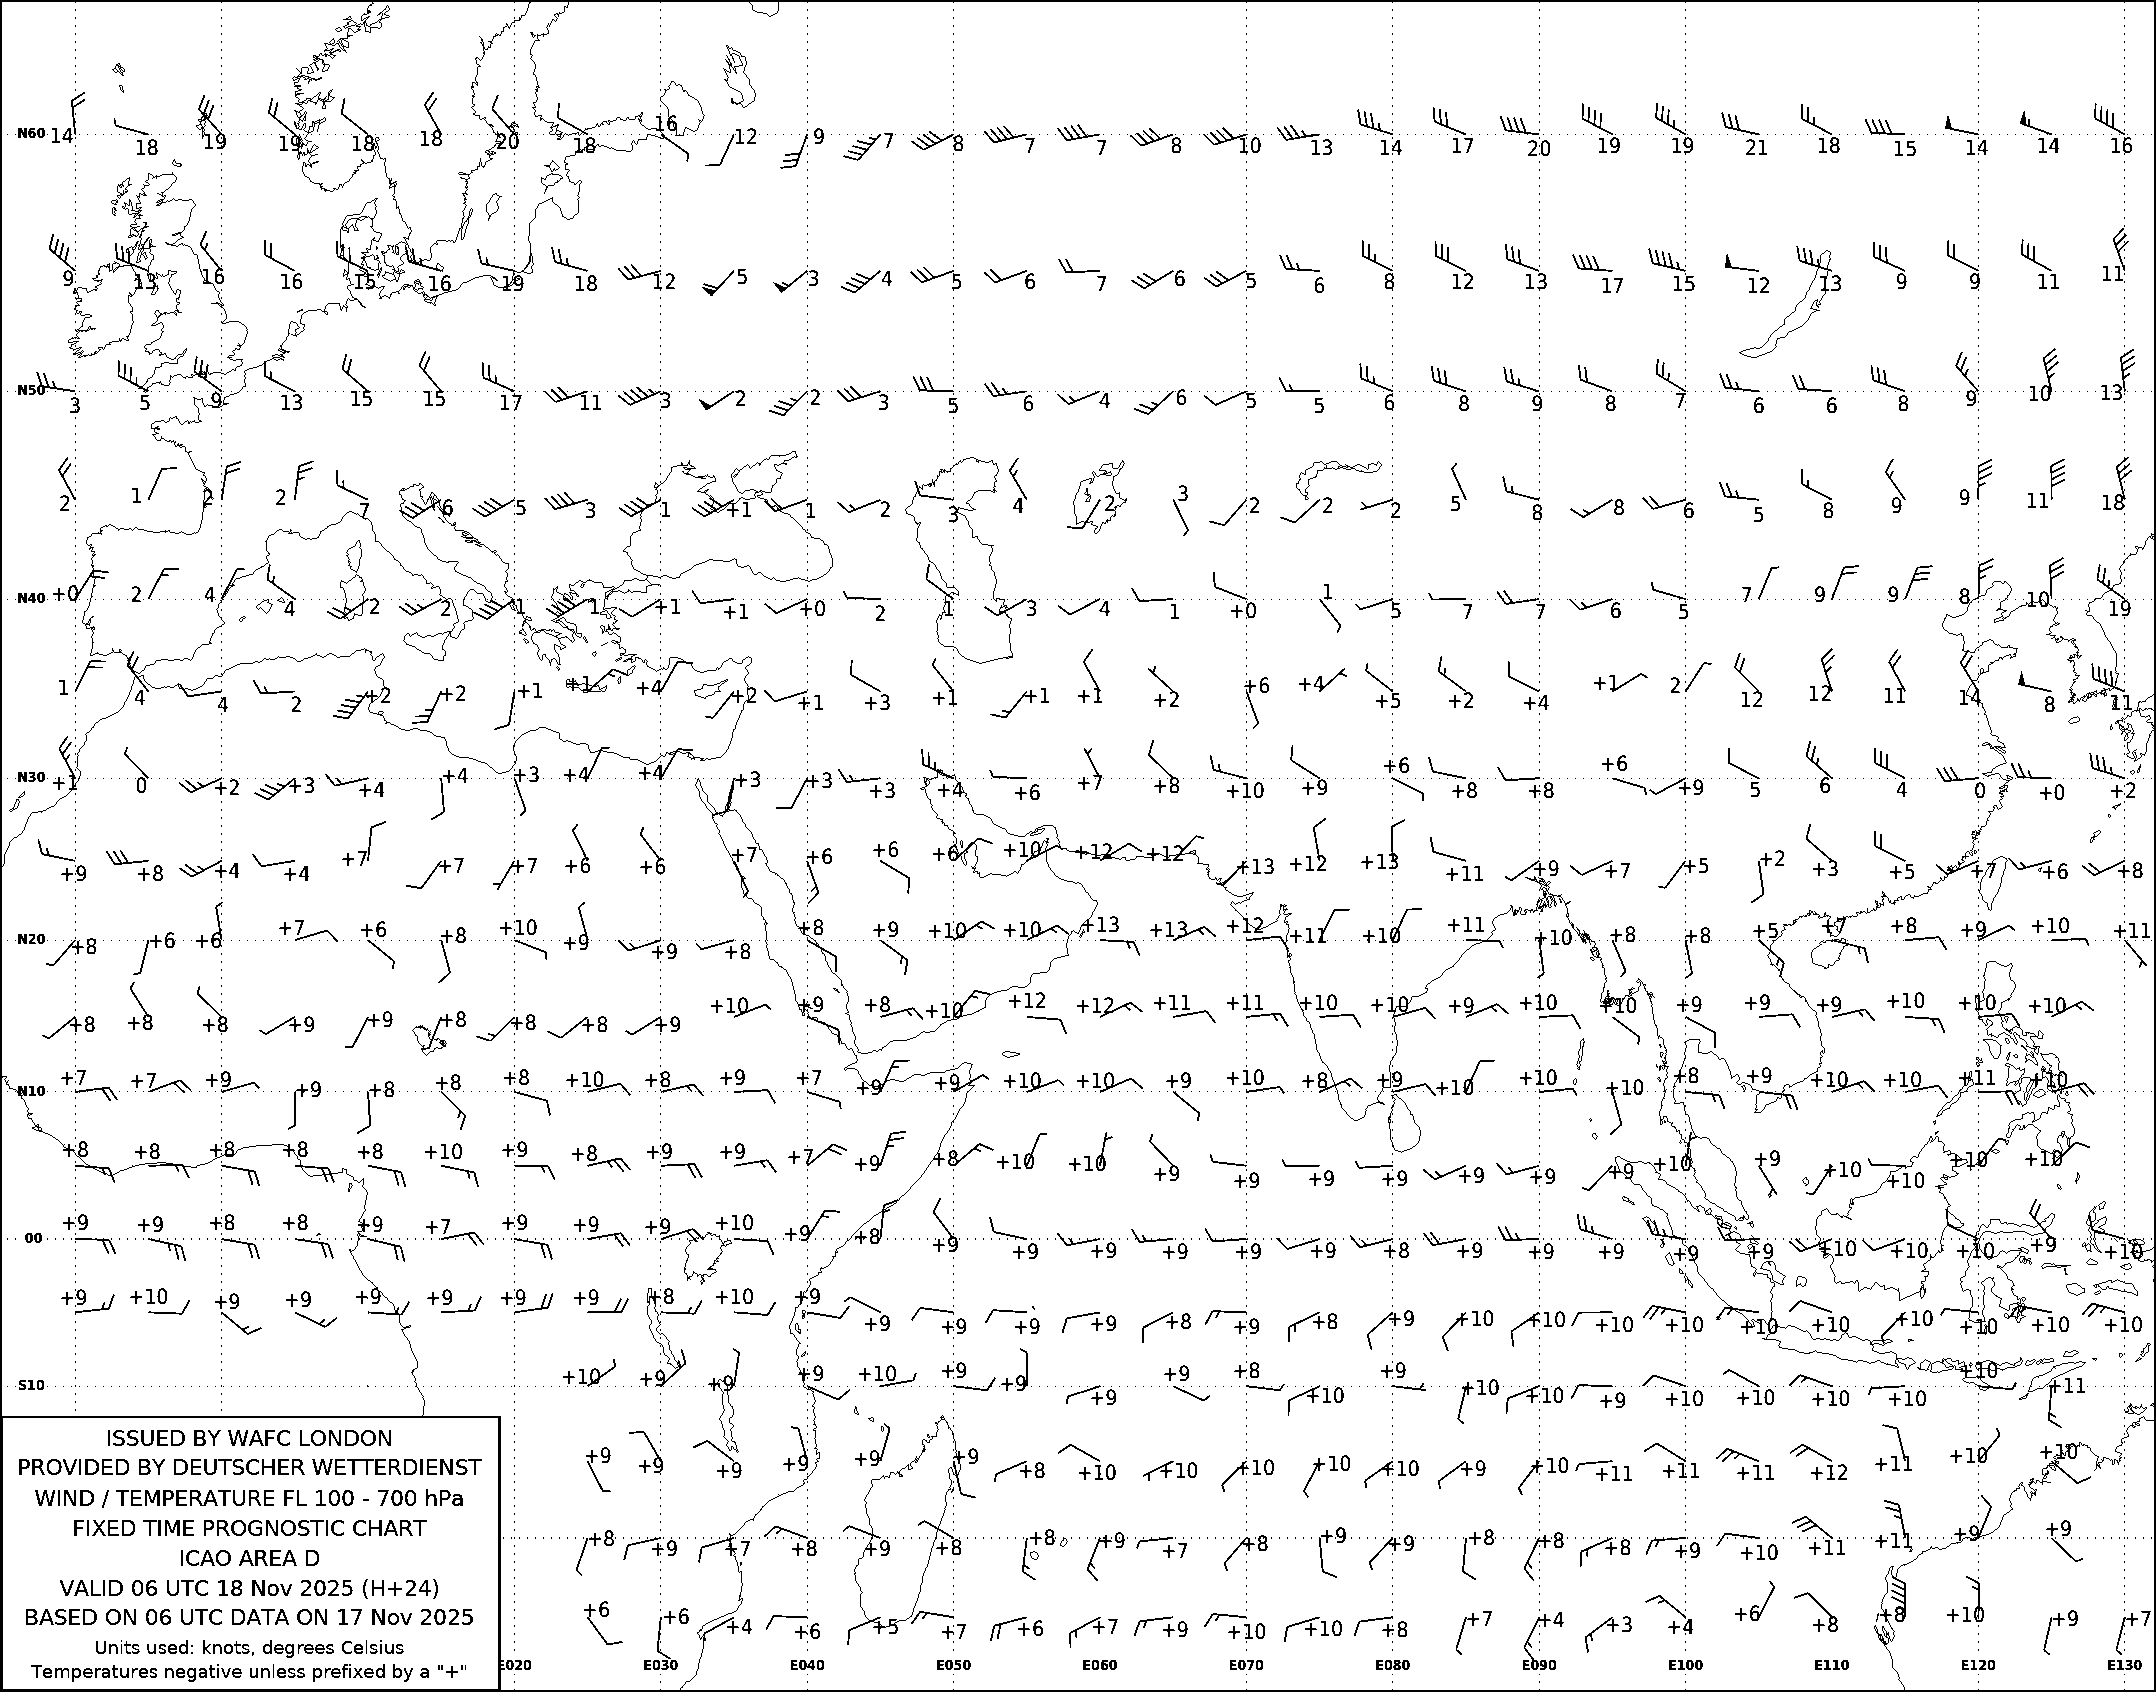 14 18 19 19 18 18 20 18 16 12 9 7 8 7 7 8 10 13 14 17 20 19 19 21 18 15 14 14 16
N60
9 13 16 16 15 16 19 18 12 5 3 4 5 6 7 6 5 6 8 12 13 17 15 12 13 9 9 11 11
N50
3 5 9 13 15 15 17 11 3 2 2 3 5 6 4 6 5 5 6 8 9 8 7 6 6 8 9 10 13
2 1 2 2 7 +6 5 3 1 +1 1 2 3 4 2 3 2 2 2 5 8 8 6 5 8 9 9 11 18
N40
+0 2 4 4 2 2 1 1 +1 +1 +0 2 1 3 4 1 +0 1 5 7 7 6 5 7 9 9 8 10 19
1 4 4 2 +2 +2 +1 +1 +4 +2 +1 +3 +1 +1 +1 +2 +6 +4 +5 +2 +4 +1 2 12 12 11 14 8 11
N30
+1 0 +2 +3 +4 +4 +3 +4 +4 +3 +3 +3 +4 +6 +7 +8 +10 +9 +6 +8 +8 +6 +9 5 6 4 0 +0 +2
+9 +8 +4 +4 +7 +7 +7 +6 +6 +7 +6 +6 +6 +10 +12 +12 +13 +12 +13 +11 +9 +7 +5 +2 +3 +5 +7 +6 +8
N20
+8 +6 +6 +7 +6 +8 +10 +9 +9 +8 +8 +9 +10 +10 +13 +13 +12 +11 +10 +11 +10 +8 +8 +5 +7 +8 +9 +10 +11
+8 +8 +8 +9 +9 +8 +8 +8 +9 +10 +9 +8 +10 +12 +12 +11 +11 +10 +10 +9 +10 +10 +9 +9 +9 +10 +10 +10
N10
+7 +7 +9 +9 +8 +8 +8 +10 +8 +9 +7 +9 +9 +10 +10 +9 +10 +8 +9 +10 +10 +10 +8 +9 +10 +10 +11 +10
+8 +8 +8 +8 +8 +10 +9 +8 +9 +9 +7 +9 +8 +10 +10 +9 +9 +9 +9 +9 +9 +9 +10 +9 +10 +10 +10 +10
00
+9 +9 +8 +8 +9 +7 +9 +9 +9 +10 +9 +8 +9 +9 +9 +9 +9 +9 +8 +9 +9 +9 +9 +9 +10 +10 +10 +9 +10
+9 +10 +9 +9 +9 +9 +9 +9 +8 +10 +9 +9 +9 +9 +9 +8 +9 +8 +9 +10 +10 +10 +10 +10 +10 +10 +10 +10 +10
S10
+10 +9 +9 +9 +10 +9 +9 +9 +9 +8 +10 +9 +10 +10 +9 +10 +10 +10 +10 +10 +11
+9 +9 +9 +9 +9 +9 +8 +10 +10 +10 +10 +10 +9 +10 +11 +11 +11 +12 +11 +10 +10
+8 +9 +7 +8 +9 +8 +8 +9 +7 +8 +9 +9 +8 +8 +8 +9 +10 +11 +11 +9 +9
+6 +6 +4 +6 +5 +7 +6 +7 +9 +10 +10 +8 +7 +4 +3 +4 +6 +8 +8 +10 +9 +7
E020 E030 E040 E050 E060 E070 E080 E090 E100 E110 E120 E130
ISSUED BY WAFC LONDON
PROVIDED BY DEUTSCHER WETTERDIENST
WIND / TEMPERATURE FL 100 - 700 hPa
FIXED TIME PROGNOSTIC CHART
ICAO AREA D
VALID 06 UTC 18 Nov 2025 (H+24)
BASED ON 06 UTC DATA ON 17 Nov 2025
Units used: knots, degrees Celsius
Temperatures negative unless prefixed by a "+"